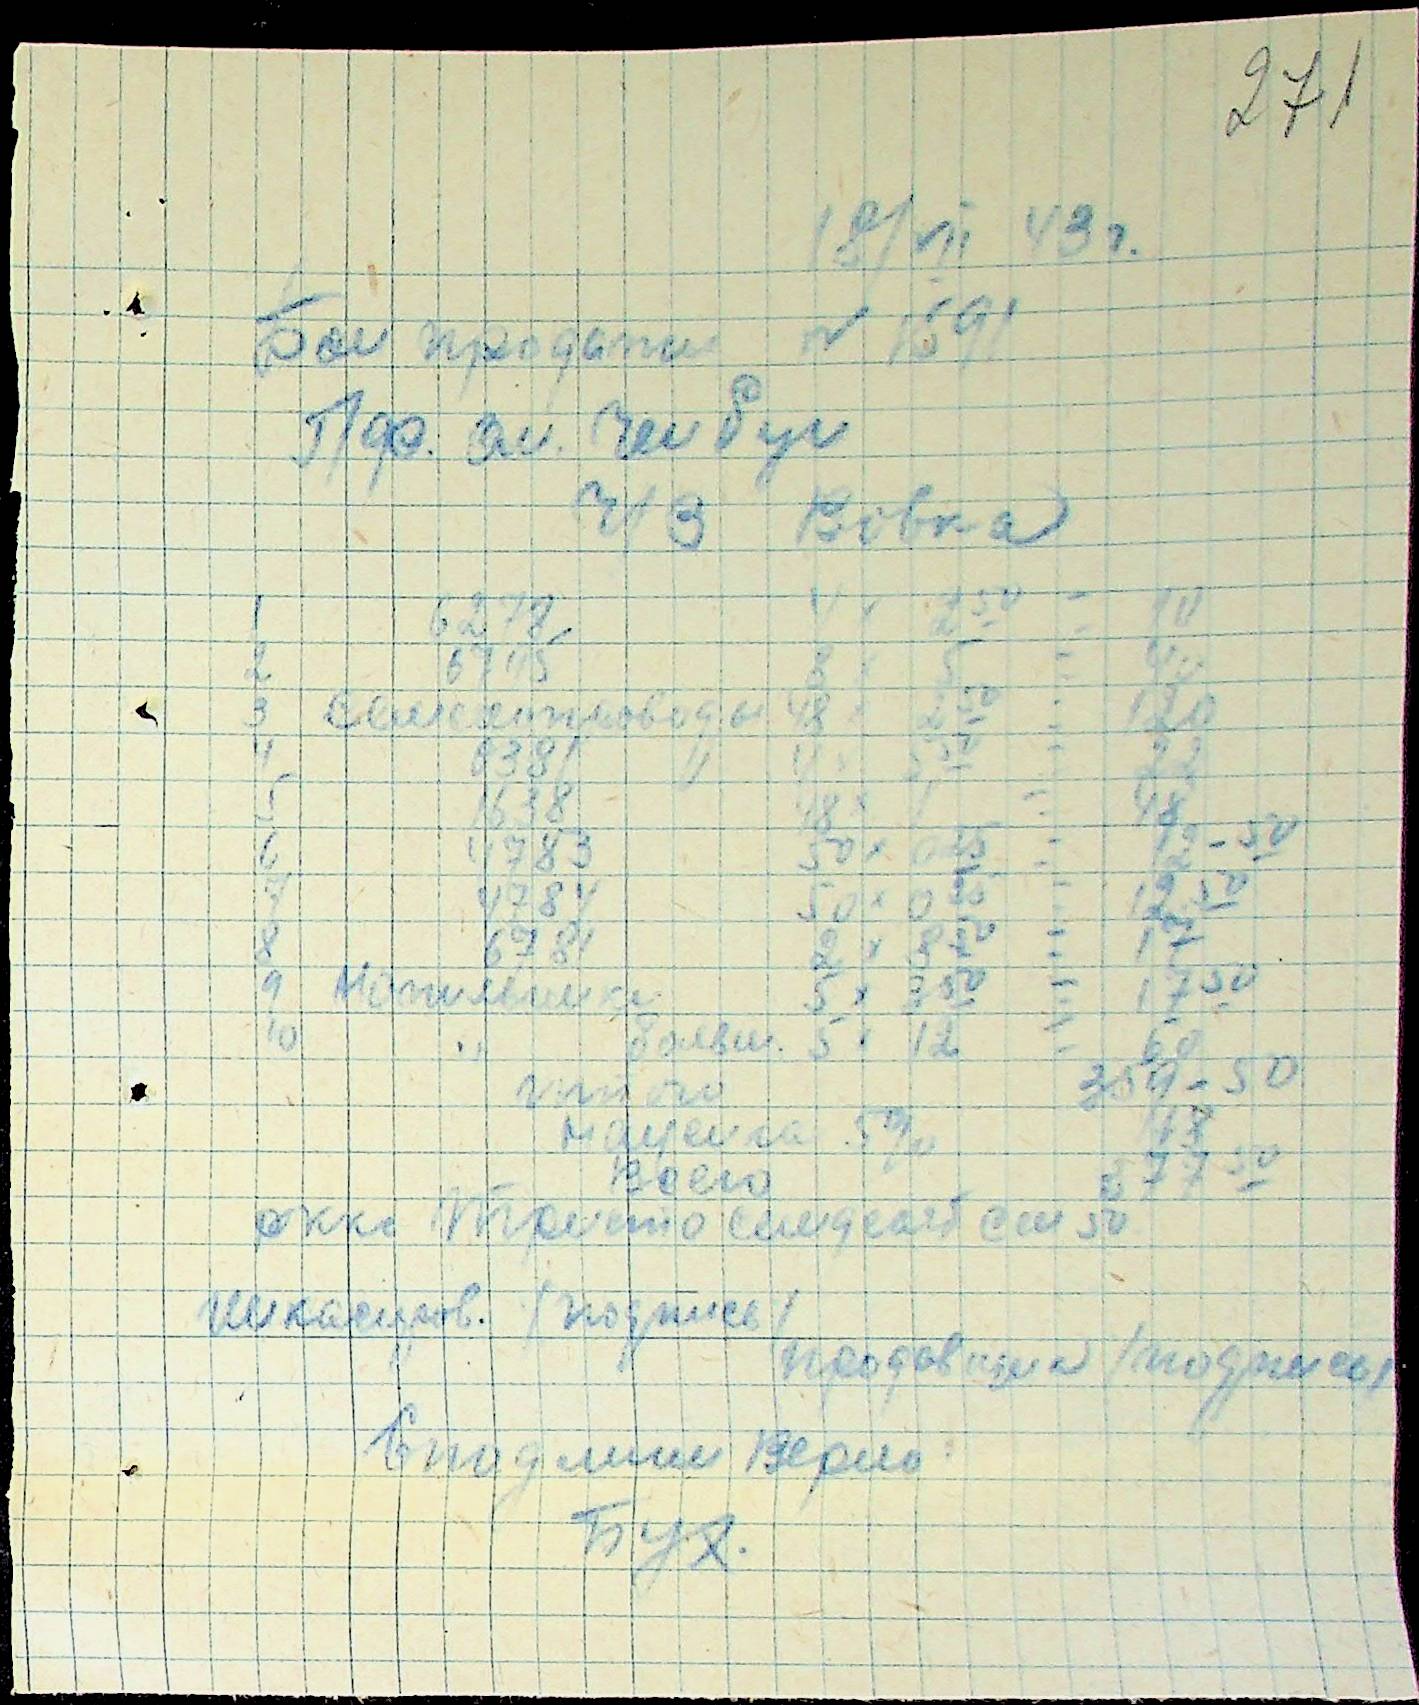 271
18/VII 43 г.
Бон продажи № 1591
Пдр. эл.
ч/з Вовка
1 6278 4 × 2 50 = 10
2 6745 8 × 5 = 40
3 48 × 2 50 = 120
4 6381 " 4 × 5 50 = 22
5 1638 48 × 1 = 48
6 4783 50 × 0 25 = 12-50
7 4784 50 × 0 25 = 12 50
8 6781 2 × 8 50 = 17
9 5 × 3 50 = 17 50
10 " больш. 5 × 12 = 60
итого 359-50
наценка 5% 18
Всего 377 50
Триста семдесят сем 50
/подпись/
продавщик /подпись/
С подлинным верно:
Бух.